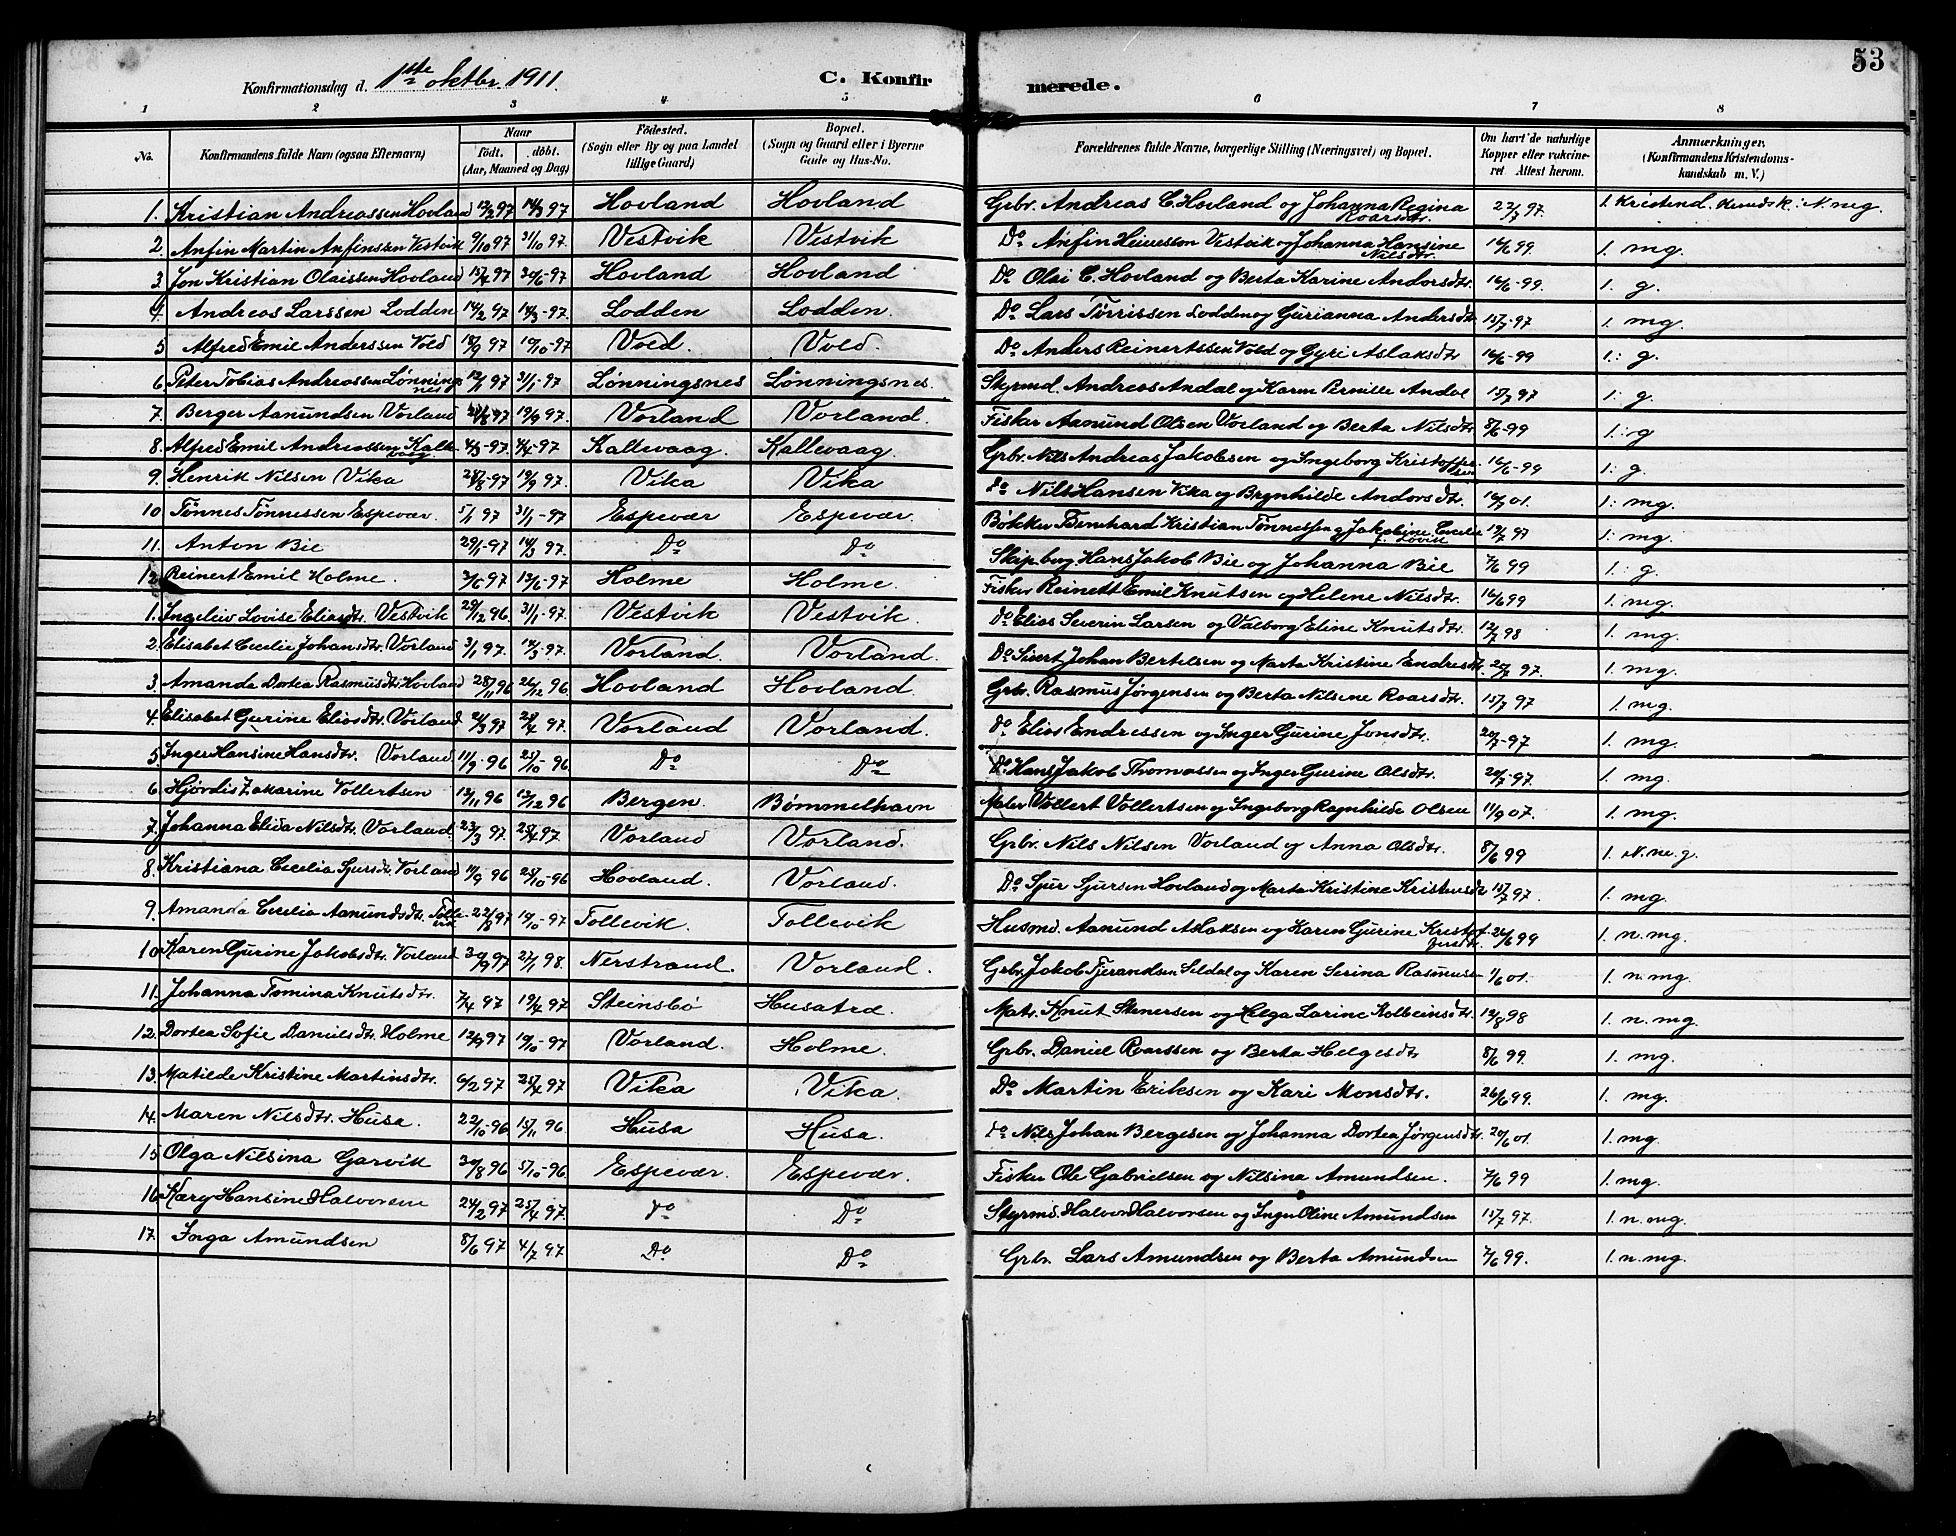 53
Konfirmationsdag d. 1ste oktbr. 1911.
C. Konfirmerede.
1 2 3 4 5 6 7 8
No.
Konfirmandens fulde Navn (ogsaa Efternavn)
Naar
født. døbt.
(Aar, Maaned og Dag)
Fødested.
(Sogn eller By og paa Landet
tillige Gaard)
Bopæl.
(Sogn og Gaard eller i Byerne
Gade og Hus-No.
Forældrenes fulde Navne, borgerlige Stilling (Næringsvei) og Bopæl.
Om havt de naturlige
Kopper eller vakcine-
ret Attest herom.
Anmærkninger.
(Konfirmandens Kristendoms-
kundskab m. V.)
1. Kristian Andreassen Hovland 12/2 97 14/3 97 Hovland Hovland Grbr. Andreas C. Hovland og Johanna Regina Roarsdtr. 22/7 97. 1. Kristend. kundsk.: N. meg.
2 Anfin Martin Anfinsen Vestvik 9/10 97 31/10 97. Vestvik Vestvik Do Anfin Heinesson Vestvik og Johanna Hansine Nilsdtr. 16/6 99 1. mg.
3 Jon Kristian Olaissen Hovland 15/4 97 20/6-97 Hovland Hovland Do Olai C. Hovland og Berta Karine Andorsdtr. 16/6-99. 1. g.
4. Andreas Larssen Lodden 14/2 97 14/3-97. Lodden Lodden. Do Lars Tørrissen Lodden og Gurianna Andersdtr 15/7-97 1. mg.
5 Alfred Emil Anderssen Vold 18/9 97 10/10-97 Vold. Vold. Do Anders Reinertssen Vold og Gyri Aslaksdtr 16/6-99 1: g.
6. Peter Tobias Andreassen Lønnings nes 12/1 97 31/1-97. Lønningsnes Lønningsnes. Styrmd. Andreas Andal og Karen Pernille Andal 15/7 97 1: g.
7. Berger Aamundsen Vorland 24/8 97 19/9 97. Vorland Vorland. Fisker Aamund Olsen Vorland og Berta Nilsdtr 8/6-99 1: g
8. Alfred Emil Andreassen Kalle vaag. 4/3-97. 4/4-97 Kallevaag Kallevaag. Grbr. Nils Andreas Jakobsen og Ingeborg Kristoffersen 16/6-99 1: g.
9. Henrik Nilsen Vika 28/8-97 19/9 97. Vika Vika Do Nils Hansen Vika og Brynhilde Andorsdtr. 16/7 01. 1: mg.
10 Tønnes Tønnessen Espevær. 5/1 97 31/1-97 Espevær Espevær. Bøkker Bernhard Kristian Tønnessen og Jakobine Cecilie 12/7 97 1: mg.
11. Anton Bie 29/1-97 14/3 97. Do Do Skipsborg Hans Jakob Bie og Johanna Bie 7/6 99 1: g.
12 Reinert Emil Holme. 3/6 97 13/6-97 Holme Holme. Fisker Reinert Emil Knutsen og Helene Nilsdtr. 16/6 99 1. meg.
1. Ingeleiv Lovise Eliasdtr. Vestvik 29/12 96 31/1-97. Vestvik Vestvik. Do Elias Severin Larsen og Valborg Eline Knutsdtr. 12/7 98 1. mg.
2. Elisabet Cecelie Johansdtr. Vorland 3/1 97. 14/3 97. Vorland. Vorland. Do Sivert Johan Bertelsen og Marta Kristine Endresdtr. 20/7 97. 1. mg.
3. Amanda Dortea Rasmusdtr. Hovland 28/11 96 26/12 96 Hovland Hovland. Grbr. Rasmus Jørgensen og Berta Nilsine Roarsdtr. 15/7 97 1. mg.
4. Elisabet Gurine Eliasdtr. Vorland 21/3 97 25/4 97. Vorland Vorland. Do Elias Endressen og Inger Gurine Jonsdtr. 20/7-97 1. mg.
5. Inger Hansine Hansdtr. Vorland. 11/9-96 25/10-96 Do Do Do Hans Jakob Thomassen og Inger Gurine Olsdtr. 20/7-97. 1. mg.
6. Hjørdis Zakarine Vollertsen 12/11 96 13/12 96 Bergen. Bømmelhavn Maler Vollert Vollertsen og Ingeborg Ragnhilde Olsen 11/9 07. 1. mg.
7. Johanna Elida Nilsdtr. Vorland. 23/3 97. 25/4 97. Vorland Vorland. Grbr. Nils Nilsen Vorland og Anna Olsdtr. 8/6 99 1. N. me. g.
8. Kristiana Cecelia Sjursdtr. Vorland 11/9 96 25/10-96 Hovland. Vorland. Do Sjur Sjursen Hovland og Marta Kristine Kristensdtr 15/7 97. 1. mg.
9. Amanda Cecelia Aamundsdtr. Tolle vik 22/8 97 10/10-97 Tollevik. Tollevik Husmd. Aamund Aslaksen og Karen Gurine Kristof fersdtr. 26/6 99 1. n. mg.
10 Karen Gurine Jakobsdtr. Vorland 30/9 97 27/1 98. Nerstrand. Vorland. Grbr. Jakob Tjerandsen Seldal og Karen Serina Rasmusd 1/6 01. 1. n. mg.
11. Johanna Tomina Knutsdtr. 7/4 97 19/4 97 Steinsbø Husatrd. Matr. Knut Stenersen og Helga Larine Kolbeinsdtr. 12/8 98 1. mg.
12. Dortea Sofie Danielsdtr. Holme 12/9 97 10/10-97 Vorland. Holme. Grbr. Daniel Roarssen og Berta Helgesdtr 8/6 99. 1. n. mg.
13. Matilde Kristine Martinsdtr. 6/2 97 25/4 97 Vika Vika. Do Martin Eriksen og Kari Monsdtr. 26/6 99. 1. mg.
14. Maren Nilsdtr. Husa. 22/10-96 15/11 96 Husa Husa. Do Nils Johan Bergesen og Johanna Dortea Jørgensdtr. 20/6 01. 1. mg.
15 Olga Nilsina Garvik 30/8 96 5/10-96. Espevær Espevær. Fisker Ole Gabrielsen og Nilsina Amundsen. 7/6 99 1. mg.
16 Kæry Hansine Halvorsen 24/2 97 25/4 97. Do Do Styrmd. Halvor Halvorsen og Inger Oline Amundsen 15/7 97. 1. n. mg.
17. Borga Amundsen 8/6 97 4/7 97 Do Do Grbr. Lars Amundsen og Berta Amundsen 7/6 99. 1. n. mg.